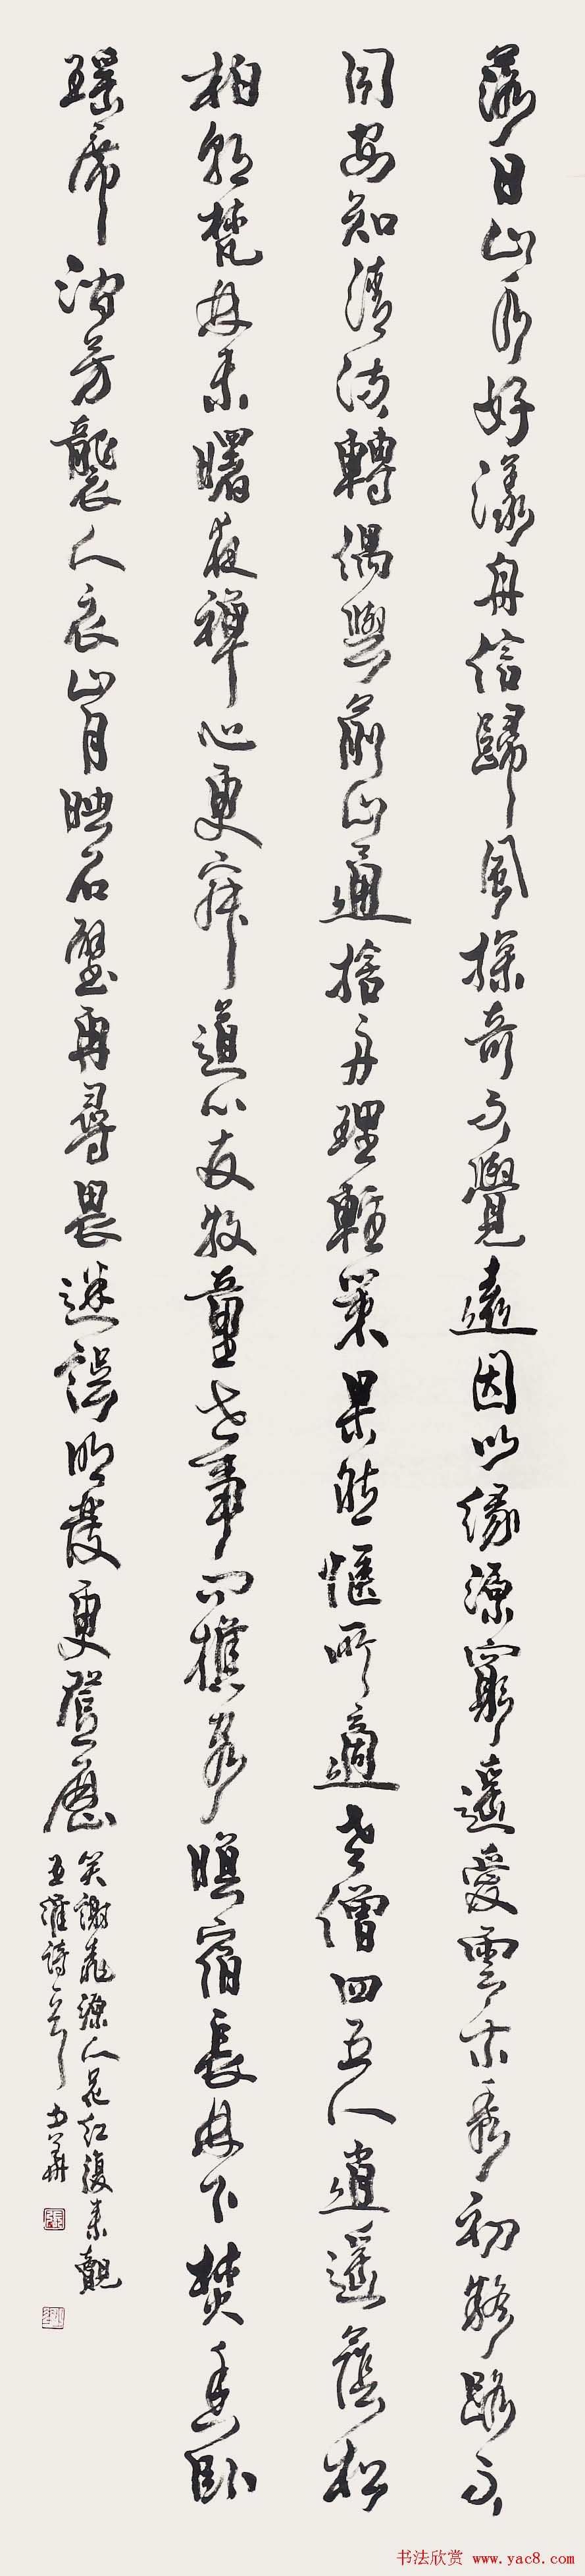 落日山水好漾舟信歸風探奇不覺遠因以緣源窮遙愛雲木秀初疑路不
同安知清流轉偶與前山通捨舟理輕策果然愜所適老僧四五人逍遙蔭松
柏朝梵林未曙夜禪山更寂道心及牧童世事問樵客暝宿長林下焚香臥
瑤席澗芳襲人衣山月映石壁再尋畏迷誤明發更登歷
笑謝桃源人花紅復來覿
王維詩一首
书法欣赏 www.yac8.com